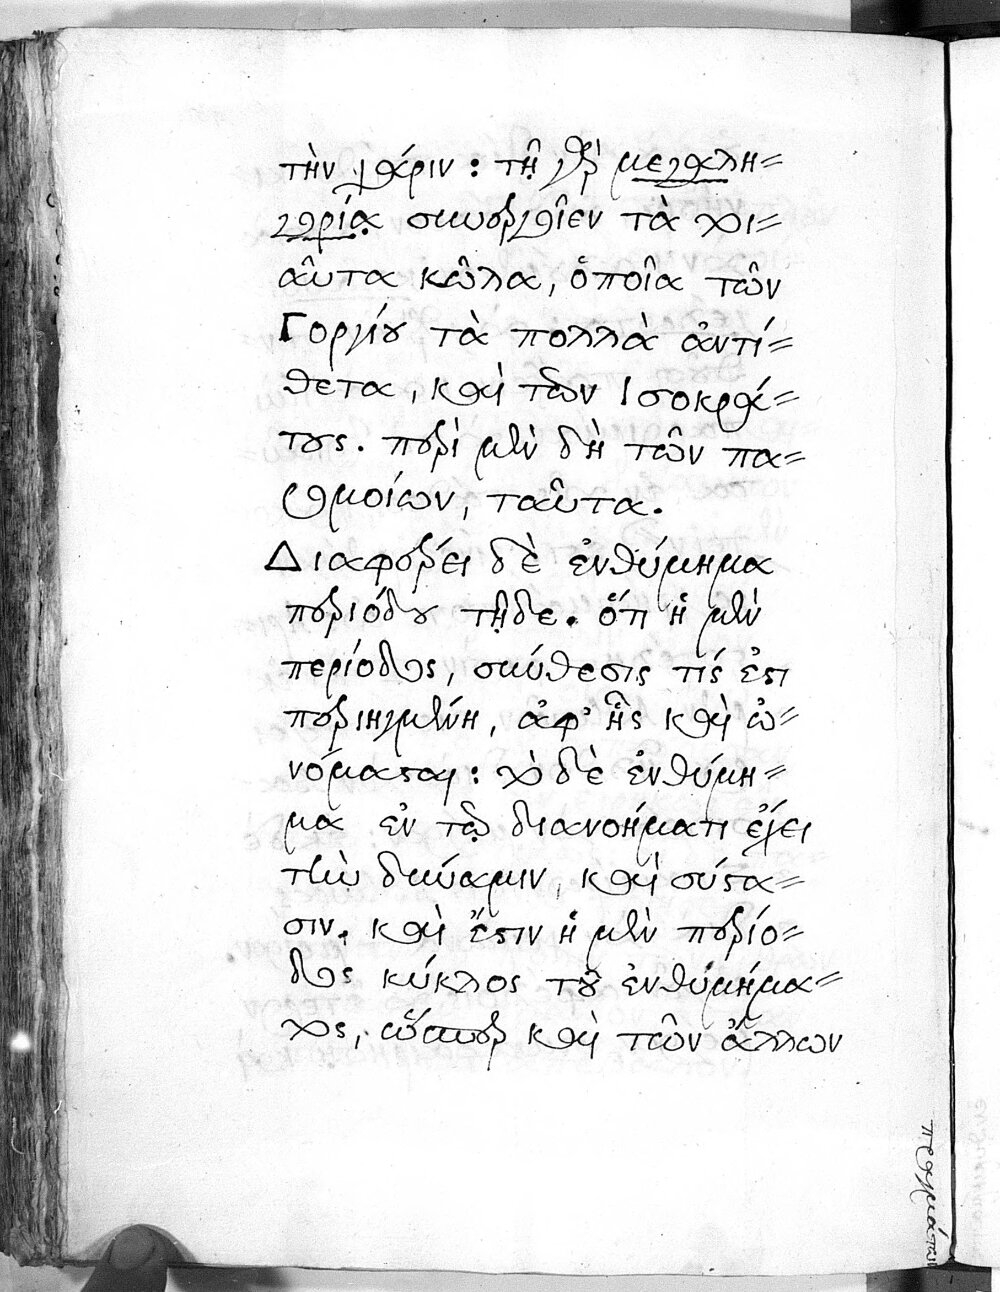 τὴν χάριν : τῇ γὰρ μεγαλη=
γορίᾳ συνεργεῖεν τὰ τοι=
αῦτα κῶλα, ὁποῖα τῶν
Γοργίου τὰ πολλὰ ἀντί=
θετα, καὶ τῶν Ἰσοκρά=
τους. περὶ μὲν δὴ τῶν πα=
ρομοίων, ταῦτα.
Διαφέρει δὲ ἐνθύμημα
περιόδου τῇδε. ὅτι ἡ μὲν
περίοδος, σύνθεσις τίς ἐστι
περιηγμένη, ἀφ' ἧς καὶ ὠ=
νόμασται : τὸ δὲ ἐνθύμη=
μα ἐν τῷ διανοήματι ἔχει
τὴν δύναμιν, καὶ σύστα=
σιν. καὶ ἔστιν ἡ μὲν περίο=
δος κύκλος τοῦ ἐνθυμήμα=
τος, ὥσπερ καὶ τῶν ἄλλων
πραγμάτων